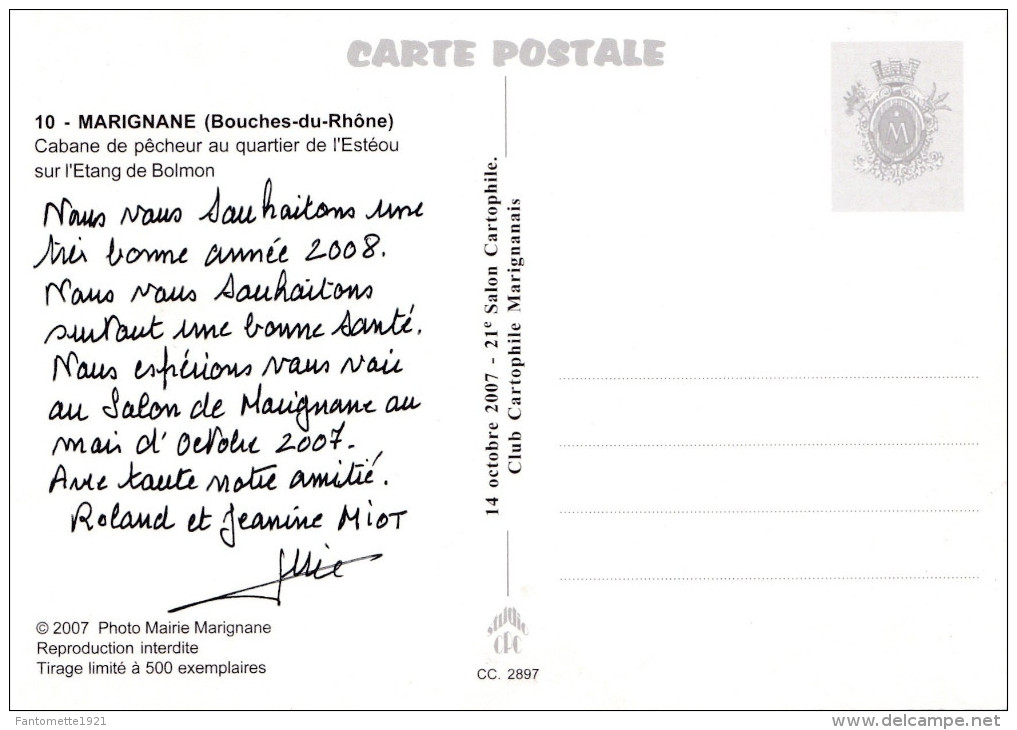 CARTE POSTALE
10 - MARIGNANE (Bouches-du-Rhône)
Cabane de pêcheur au quartier de l'Estéou
sur l'Etang de Bolmon
Nous vous souhaitons une
très bonne année 2008.
Nous vous souhaitons
surtout une bonne santé.
Nous espérions vous voir
au Salon de Marignane au
mois d'octobre 2007.
Avec toute notre amitié.
Roland et Jeanine MIOT
© 2007 Photo Mairie Marignane
Reproduction interdite
Tirage limité à 500 exemplaires
14 octobre 2007 - 21e Salon Cartophile.
Club Cartophile Marignanais
M
CPC
CC. 2897
Fantomette1921
www.delcampe.net